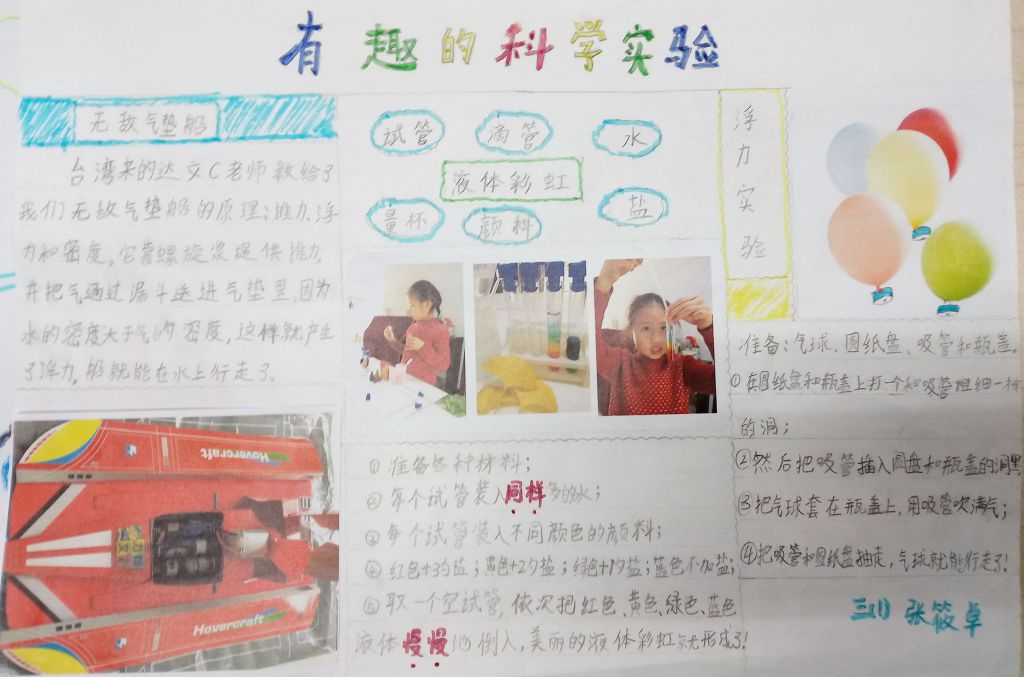 有趣的科学实验
无敌气垫船
台湾来的达文C老师教给了
我们无敌气垫船的原理:推力、浮
力和密度。它靠螺旋浆提供推力。
并把气通过漏斗送进气垫里,因为
水的密度大于气的密度,这样就产生
了浮力。船就能在水上行走了。
Hovercraft
Hovercraft
试管
滴管
水
液体彩虹
量杯
颜料
盐
①准备各种材料;
②每个试管装入同样多的水;
③每个试管装入不同颜色的颜料;
④红色+3勺盐;黄色+2勺盐;绿色+1勺盐;蓝色不加盐;
⑤取一个空试管,依次把红色、黄色、绿色、蓝色
液体慢慢地倒入,美丽的液体彩虹就形成了!
浮力实验
准备:气球、圆纸盘、吸管和瓶盖。
①在圆纸盘和瓶盖上打一个和吸管粗细一样
的洞;
②然后把吸管插入圆盘和瓶盖的洞里
③把气球套在瓶盖上,用吸管吹满气;
④把吸管和圆纸盘抽走,气球就能行走了!
三(1) 张筱卓